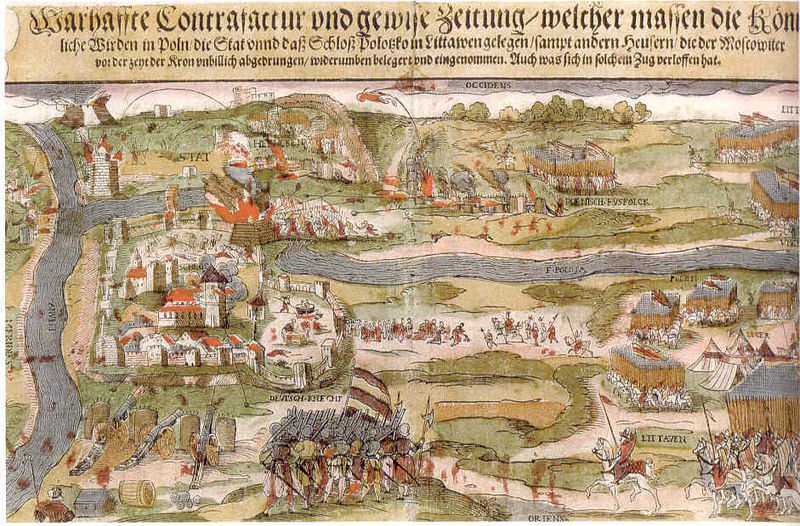 Warhaffte Contrafactur vnd gewise Zeitung / welcher massen die Kön
liche Wirden in Poln / die Stat vnnd daß Schloß Polotzko in Littawen gelegen / sampt andern Heusern / die der Moscowiter
vor der zeyt der Kron vnbillich abgedrungen / widerumben belegert vnd eingenommen. Auch was sich in solchem Zug verloffen hat.
OCCIDENS
LITT
STAT
POLNISCH·FVSFOLCK
F·POLOTA
DEVTSCH·KNECHT
LITTAVEN
ORIENS